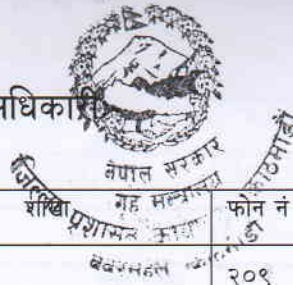 धिकारी
नेपाल सरकार
गृह मन्त्रालय
जिल्ला प्रशासन कार्यालय
काठमाडौं
बबरमहल
शाखा
फोन नं
२०९